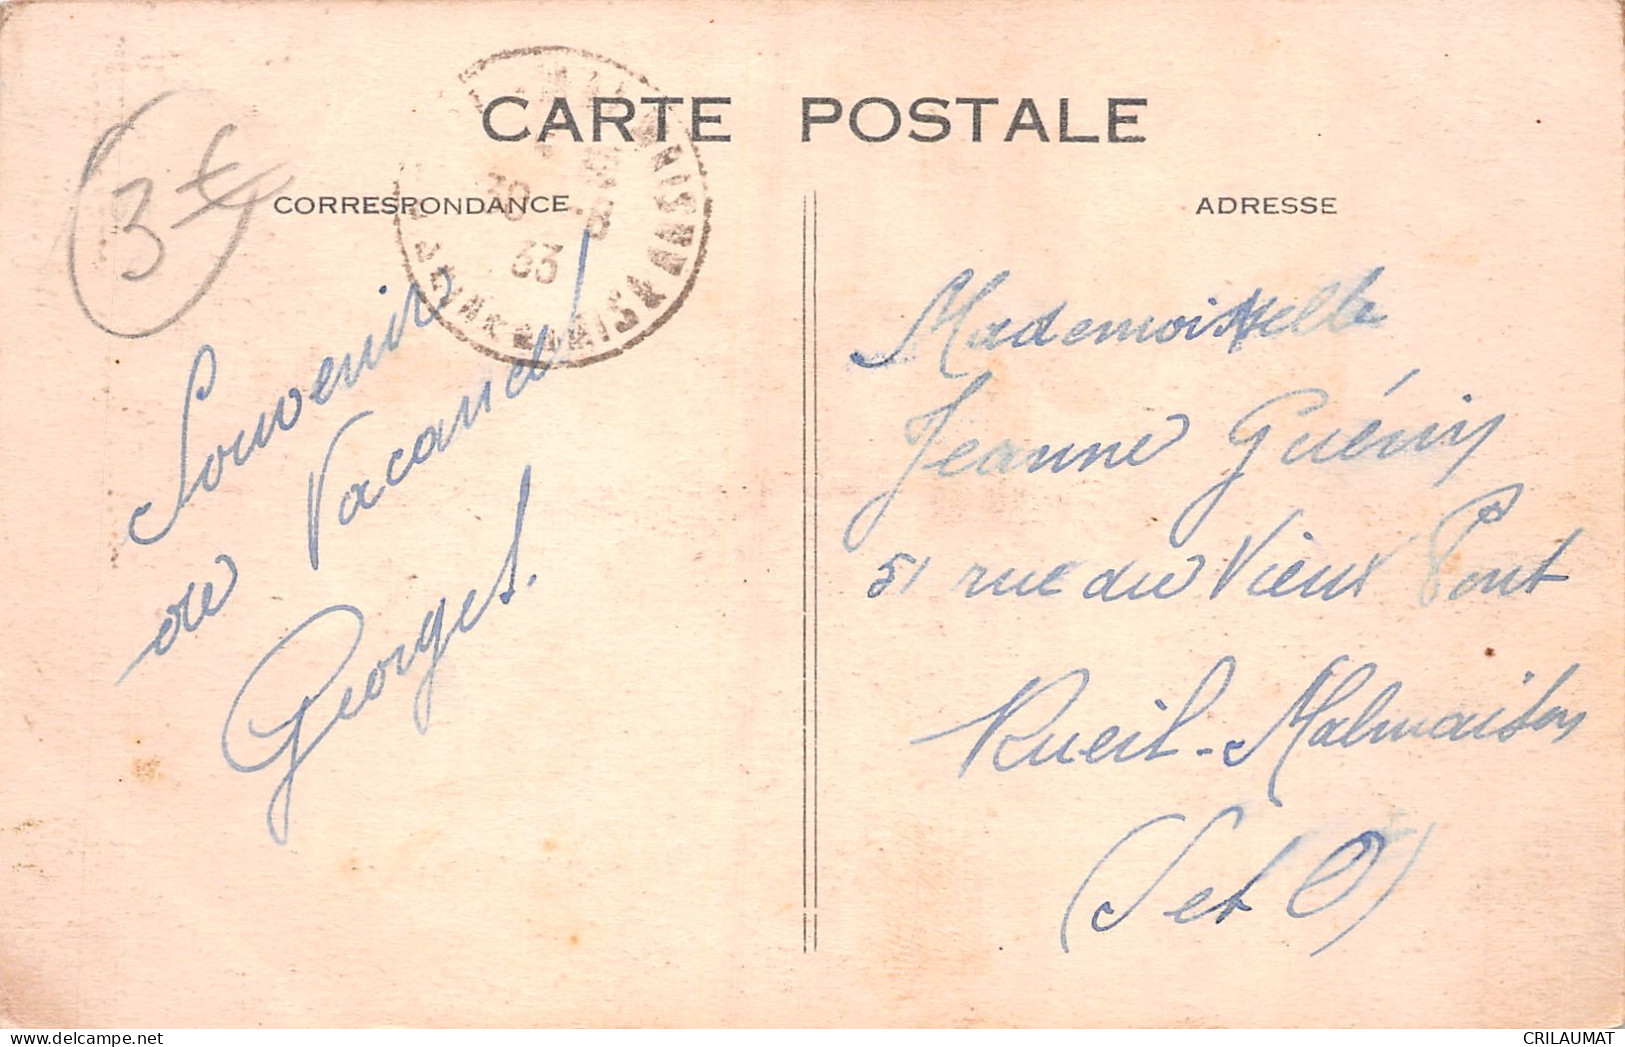 CARTE POSTALE
CORRESPONDANCE
ADRESSE
3€
30
33
Souvenir
de Vacances
Georges.
Mademoiselle
Jeanne Guérin
51 rue du Vieux Pont
Rueil-Malmaison
(S et O)
CRILAUMAT